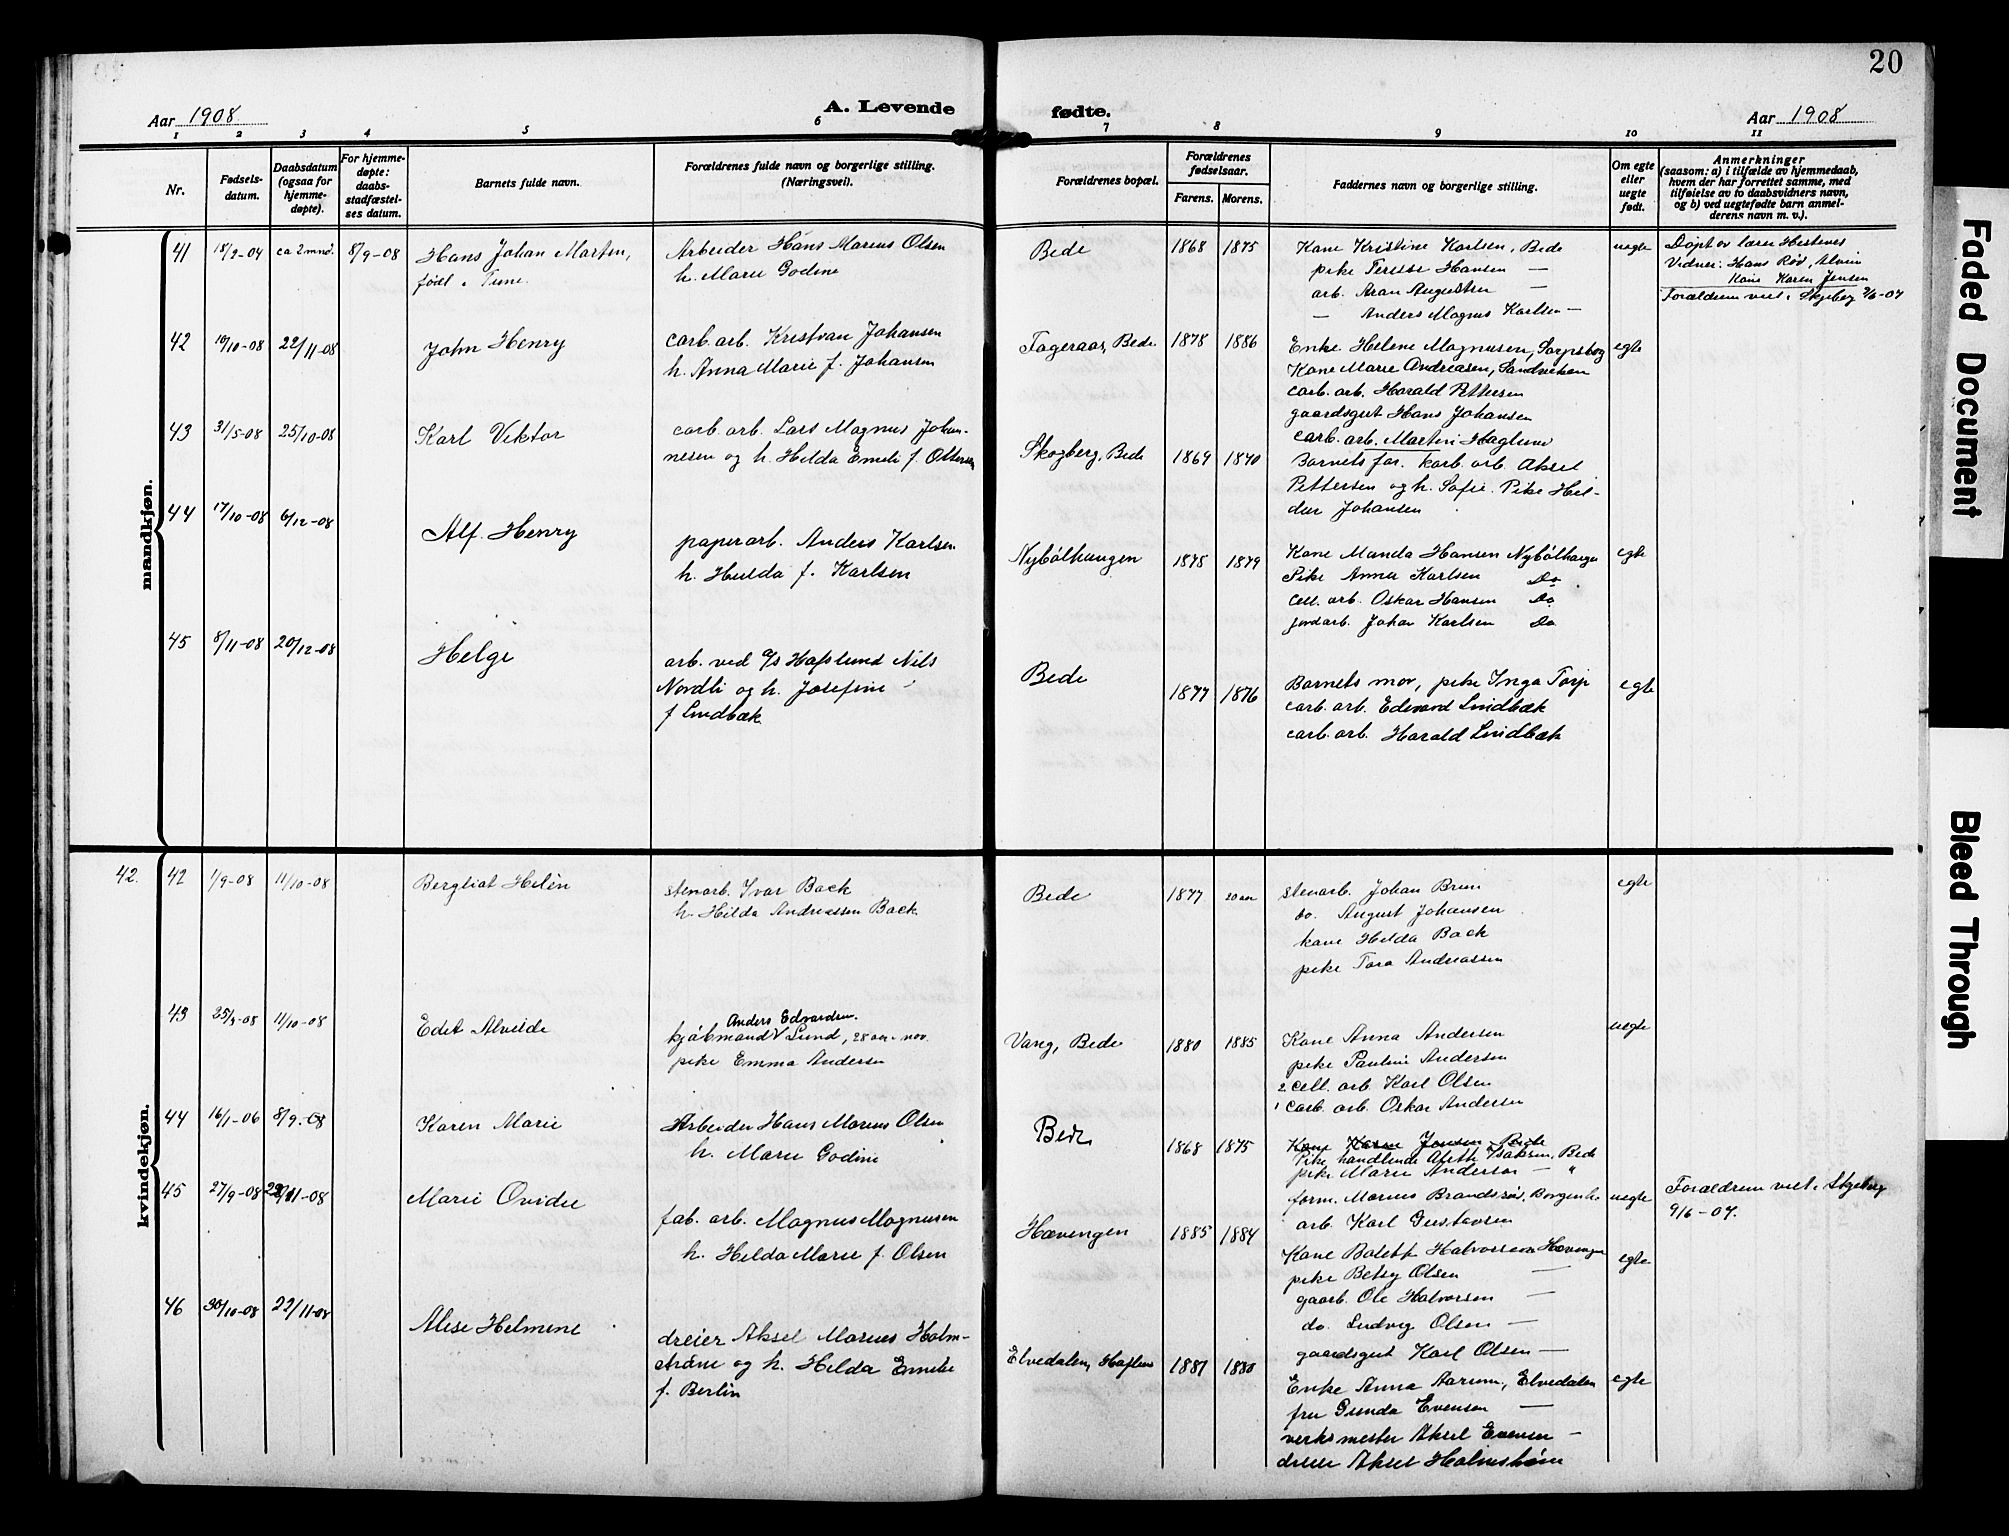 20
Aar 1908
A. Levende
fødte.
Aar 1908
1 2 3 4 5 6 7 8 9 10 11
Nr.
Fødsels-
datum.
Daabsdatum
(ogsaa for
hjemme-
døpte).
For hjemme-
døpte:
daabs-
stadfæstel-
ses datum.
Barnets fulde navn.
Forældrenes fulde navn og borgerlige stilling.
(Næringsvei).
Forældrenes bopæl.
Forældrenes
fødselsaar.
Farens. Morens.
Faddernes navn og borgerlige stilling.
Om egte
eller
uegte
født.
Anmerkninger
(saasom: a) i tilfælde av hjemmedaab,
hvem der har forrettet samme, med
tilføielse av to daabsvidners navn,
og b) ved uegtefødte barn anmel-
derens navn m. v.).
mandkjøn.
41 18/2-04 ca 2 mnd. 8/9-08
Hans Johan Marten,
født i Tune.
Arbeider Hans Marius Olsen
h. Marie Godine
Bede 1868 1875
Kone Kristine Karlsen, Bede
pike Terese Hansen —
arb. Aron Augustsen —
— Anders Magnus Karlsen —
uegte
Døpt av lærer Hestenes
Vidner: Hans Rød, Alvin
Kone Karen Jensen
Forældrene viet i Skjeberg 9/6-07
42 19/10-08 22/11-08
John Henry
carb. arb. Kristian Johansen
h. Anna Marie f. Johansen
Fageraas, Bede 1878 1886
Enke Helene Magnusen, Sarpsborg
Kone Marie Andreasen, Sandviken
carb. arb. Harald Pettersen
gaardsgut Hans Johansen
carb. arb. Martin Haglund
egte
43 31/5-08 25/10-08
Karl Viktor
carb. arb. Lars Magnus Johan-
nesen og h. Hilda Emeli f. Ottersen
Skogberg, Bede 1869 1870
Barnets far. karb. arb. Aksel
Pettersen og h. Sofie. Pike Hil-
dur Johansen
44 17/10-08 6/12-08
Alf Henry
papirarb. Anders Karlsen
h. Hulda f. Karlsen
Nybølhaugen 1875 1879
Kone Manda Hansen Nybølhaugen
Pike Anna Karlsen Do
Cell. arb. Oskar Hansen Do
jordarb. Johan Karlsen Do
egte
45 8/11-08 20/12-08
Helge
arb. ved a/s Hafslund Nils
Nordli og h. Josefine
f Lindbæk
Bede 1877 1876
Barnets mor, pike Inga Torp
carb. arb. Edvard Lindbæk
carb. arb. Harald Lindbæk
egte
kvindekjøn.
42. 42 1/9-08 11/10-08
Bergliot Helèn
stenarb. Ivar Back
h. Hilda Andreassen Back
Bede 1877 20 aar
stenarb. Johan Brun
do. August Johansen
kone Hilda Back
pike Tora Andreassen
egte
43 11/10-08
Edet Alvilde
Anders Edvardsen
kjøbmand V Lund, 28 aar i nov.
pike Emma Andersen
Vang, Bede 1880 1885
Kone Anna Andersen
pike Pauline Andersen
2 cell. arb. Karl Olsen
1 carb. arb. Oskar Andersen
uegte
44 16/1-06 8/9-08
Karen Marie
Arbeider Hans Marius Olsen
h. Marie Godine
Bede 1868 1875
Kone Karen Jensen Bede
Pike handlende Aleth Isaksen, Bede
pike Marie Andersen — "
form. Marius Brandsrød, Borgenh.
arb. Karl Gustavsen
uegte
Forældrene viet i Skjeberg
9/6-07.
45 27/9-08 22/11-08
Marie Ovidie
fab. arb. Magnus Magnusen
h. Hilda Marie f. Olsen
Hævingen 1885 1884
Kone Bolette Halvorsen Hævingen
pike Betsy Olsen —
gaarb. Ole Halvorsen —
do. Ludvig Olsen —
gaardsgut Karl Olsen —
egte
46 30/10-08 22/11-08
Alise Helmine
dreier Aksel Marius Holm-
strøm og h. Hilda Emilie
f. Berlin
Elvedalen, Hafslund 1881 1880
Enke Anna Aarum, Elvedalen
fru Gunda Evensen —
verksmester Aksel Evensen —
dreier Aksel Holmstrøm
egte
Faded Document
Bleed Through